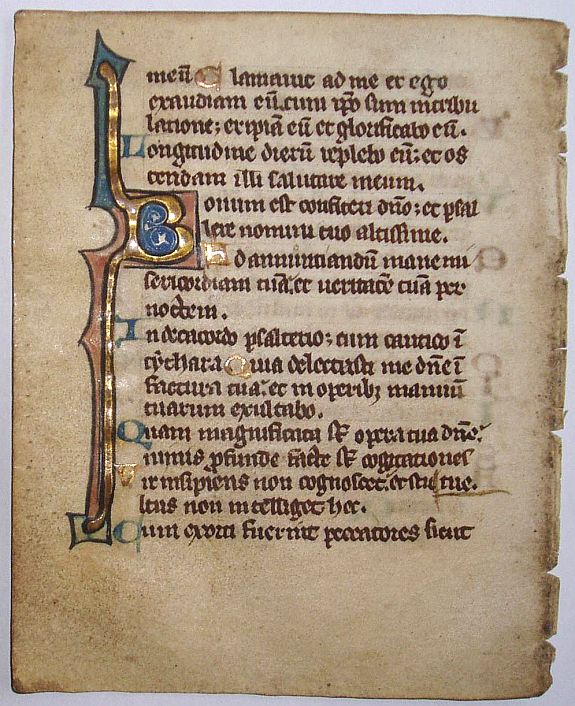 meū Clamauit ad me et ego
exaudiam eū. cum ip̄o sum in tribu
latione; eripiā eū et glorificabo eū.
Longitudine dierū replebo eū; et os
tendam illi salutare meum.
Bonum est confiteri dn̄o; et psal
lere nomini tuo altissime.
Ad annuntiandū mane mi
sericordiam tuā. et ueritatē tuā per
noctem.
In decacordo psalterio; cum cantico ī
cythara Quia delectasti me dn̄e ī
factura tua. et in operibꝫ manuū
tuarum exultabo.
Quam magnificata st̄ opera tua dn̄e.
nimis ꝓfunde facte st̄ cogitationes
Vir insipiens non cognoscet. et stu tue.
ltus non intelliget hec.
Cum exorti fuerint peccatores sicut